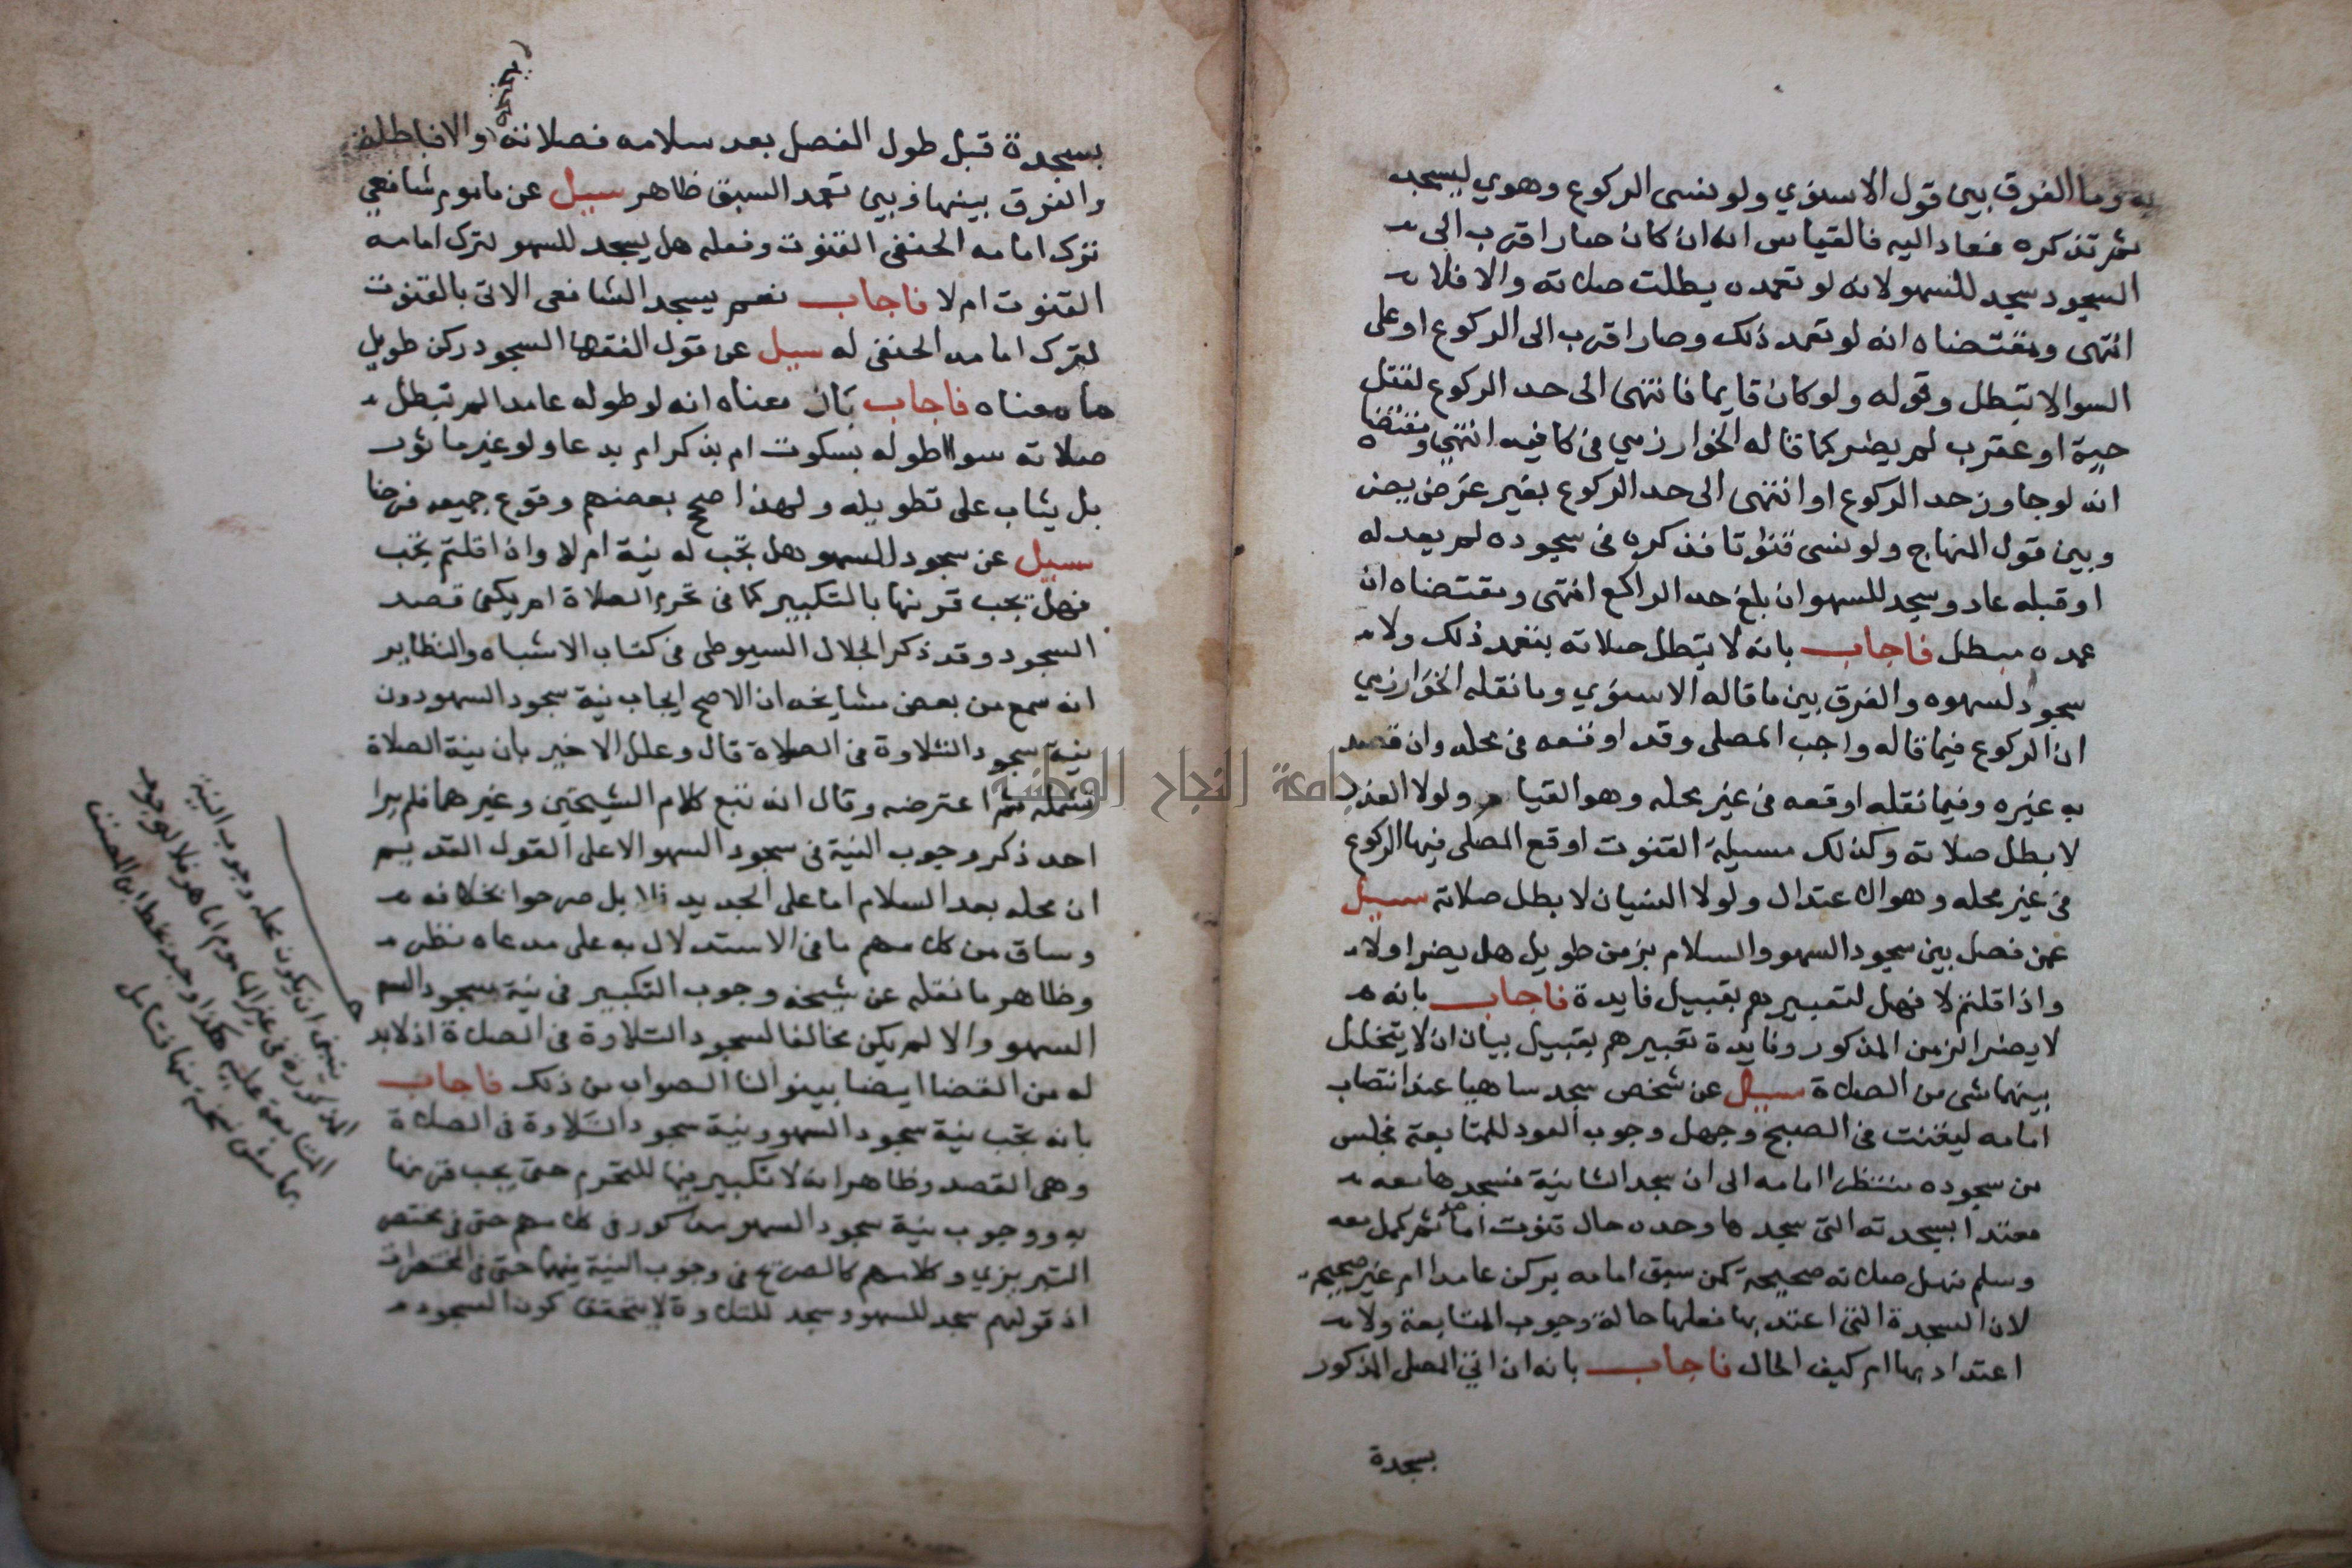 به وما الفرق بين قول الاسنوي ولو نسى الركوع وهوي ليسجد
ثم تذكره فعاد اليه فالقياس انه ان كان صار اقرب الى
السجود سجد للسهو لانه لو تعمده يطلت صلاته والا فلا
انتهى ومقتضاه انه لو تعمد ذلك وصار اقرب الى الركوع او على
السوا لا تبطل وقوله ولو كان قايما فانتهى الى حد الركوع لقتل
حية او عقرب لم يضر كما قاله الخوارزمي في كافيه انتهى ومقتضاه
انه لو جاوز حد الركوع او انتهى الى حد الركوع بغير غرض يضر
وبين قول المنهاج ولو نسى قنوتا فذكره في سجوده لم يعد له
او قبله عاد وسجد للسهو ان بلغ حد الراكع انتهى ومقتضاه ان
عمده مبطل فاجاب بانه لا تبطل صلاته بتعمد ذلك ولا
سجود لسهوه والفرق بين ما قاله الاسنوي وما نقله الخوارزمي
ان الركوع فيما قاله واجب المصلى وقد اوقعه في محله وان قصد
به غيره وفيما نقله اوقعه في غير محله وهو القيام ولولا العذر
لابطل صلاته وكذلك مسيلة القنوت اوقع المصلى فيها الركوع
في غير محله وهو الاعتدال ولولا النسيان لابطل صلاته سيل
عمن فصل بين سجود السهو والسلام بزمن طويل هل يضر اولا
واذا قلتم لا فهل لتعبيرهم بقبيل فايدة فاجاب بانه
لا يضر الزمن المذكور وفايدة تعبيرهم بقبيل بيان ان لا يتخلل
بينهما شى من الصلاة سيل عن شخص سجد ساهيا عند انتصاب
امامه ليقنت في الصبح وجهل وجوب العود للمتابعة فجلس
من سجوده منتظرا امامه الى ان سجد الثانية فسجدها معه
معتدا بسجدته التى سجدها وحده حال قنوت امامه ثم كمل معه
وسلم فهل صلاته صحيحة كمن سبق امامه بركن عامدا ام غير صحيحة
لان السجدة التى اعتد بها فعلها حالة وجوب المتابعة ولا
اعتداد بها ام كيف الحال فاجاب بانه ان اتى المصلى المذكور
بسجدة
بسجدة قبل طول الفصل بعد سلامه فصلاته والا فباطلة
صحيحة
والفرق بينها وبين تعمد السبق ظاهر سيل عن ماموم شافعي
ترك امامه الحنفى القنوت وفعله هل يسجد للسهو لترك امامه
القنوت ام لا فاجاب نعم يسجد الشافعى الاتى بالقنوت
لترك امامه الحنفى له سيل عن قول الفقها السجود ركن طويل
ما معناه فاجاب بان معناه انه لو طوله عامدا لم تبطل
صلاته سوا طوله بسكوت ام بذكر ام بدعا ولو غير ماثور
بل يثاب على تطويله ولهذا صح بعضهم وقوع جميعه فرضا
سيل عن سجود السهو هل تجب له نية ام لا واذا قلتم تجب
فهل تجب قرنها بالتكبير كما في تحرم الصلاة ام يكفى قصد
السجود وقد ذكر الجلال السيوطى في كتاب الاشباه والنظاير
انه سمع من بعض مشايخه ان الاصح ايجاب نية سجود السهو دون
نية سجود التلاوة في الصلاة قال وعلل الاخير بان نية الصلاة
تشمله ثم اعترضه وقال انه تتبع كلام الشيخين وغيرهما فلم يرا
احد ذكر وجوب النية في سجود السهو الا على القول القديم
ان محله بعد السلام اما على الجديد فلا بل صرحوا بخلافه
وساق من كلامهم ما في الاستدلال به على مدعاه نظر
وظاهر ما نقله عن شيخه وجوب التكبير في نية سجود السهو
السهو والا لم يكن مخالفا لسجود التلاوة في الصلاة اذ لابد
له من القضا ايضا بينوا لنا الصواب من ذلك فاجاب
بانه تجب نية سجود السهو ونية سجود التلاوة في الصلاة
وهى القصد وظاهر انه لا تكبير فيها للتحرم حتى يجب قرنها
به ووجوب نية سجود السهو مذكور في كلامهم حتى في مختصر
التبريزي وكلامهم كالصريح في وجوب النية فيهما حتى في المختصرات
اذ قولهم سجد للسهو وسجد للتلاوة لا يتحقق كون السجود
ينبغى ان يكون محله وجوب النية
المذكورة في غير الماموم اما هو فلا لوجوب
المتابعة عليه هكذا وجد بخط ابن المصنف
بهامش نسخة منها فتامل
جامعة النجاح الوطنية